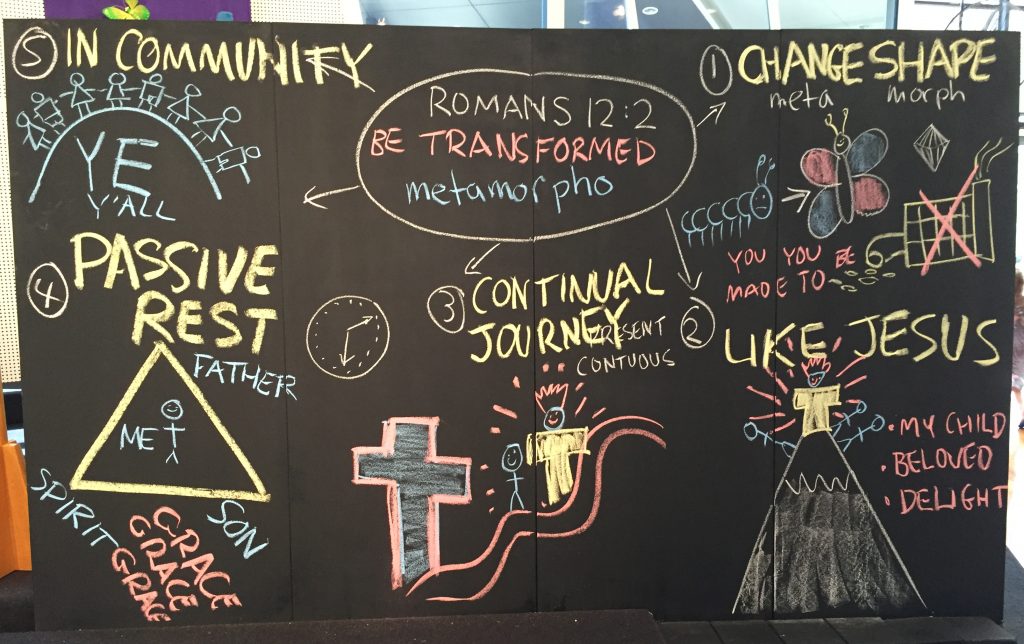 ROMANS 12:2
BE TRANSFORMED
metamorpho
① CHANGE SHAPE
meta morph
YOU YOU BE
MADE TO
② LIKE JESUS
• MY CHILD
• BELOVED
• DELIGHT
③ CONTINUAL
JOURNEY
PRESENT
CONTUOUS
④ PASSIVE
REST
FATHER
ME
SPIRIT
SON
GRACE
GRACE
GRACE
⑤ IN COMMUNITY
YE
Y'ALL